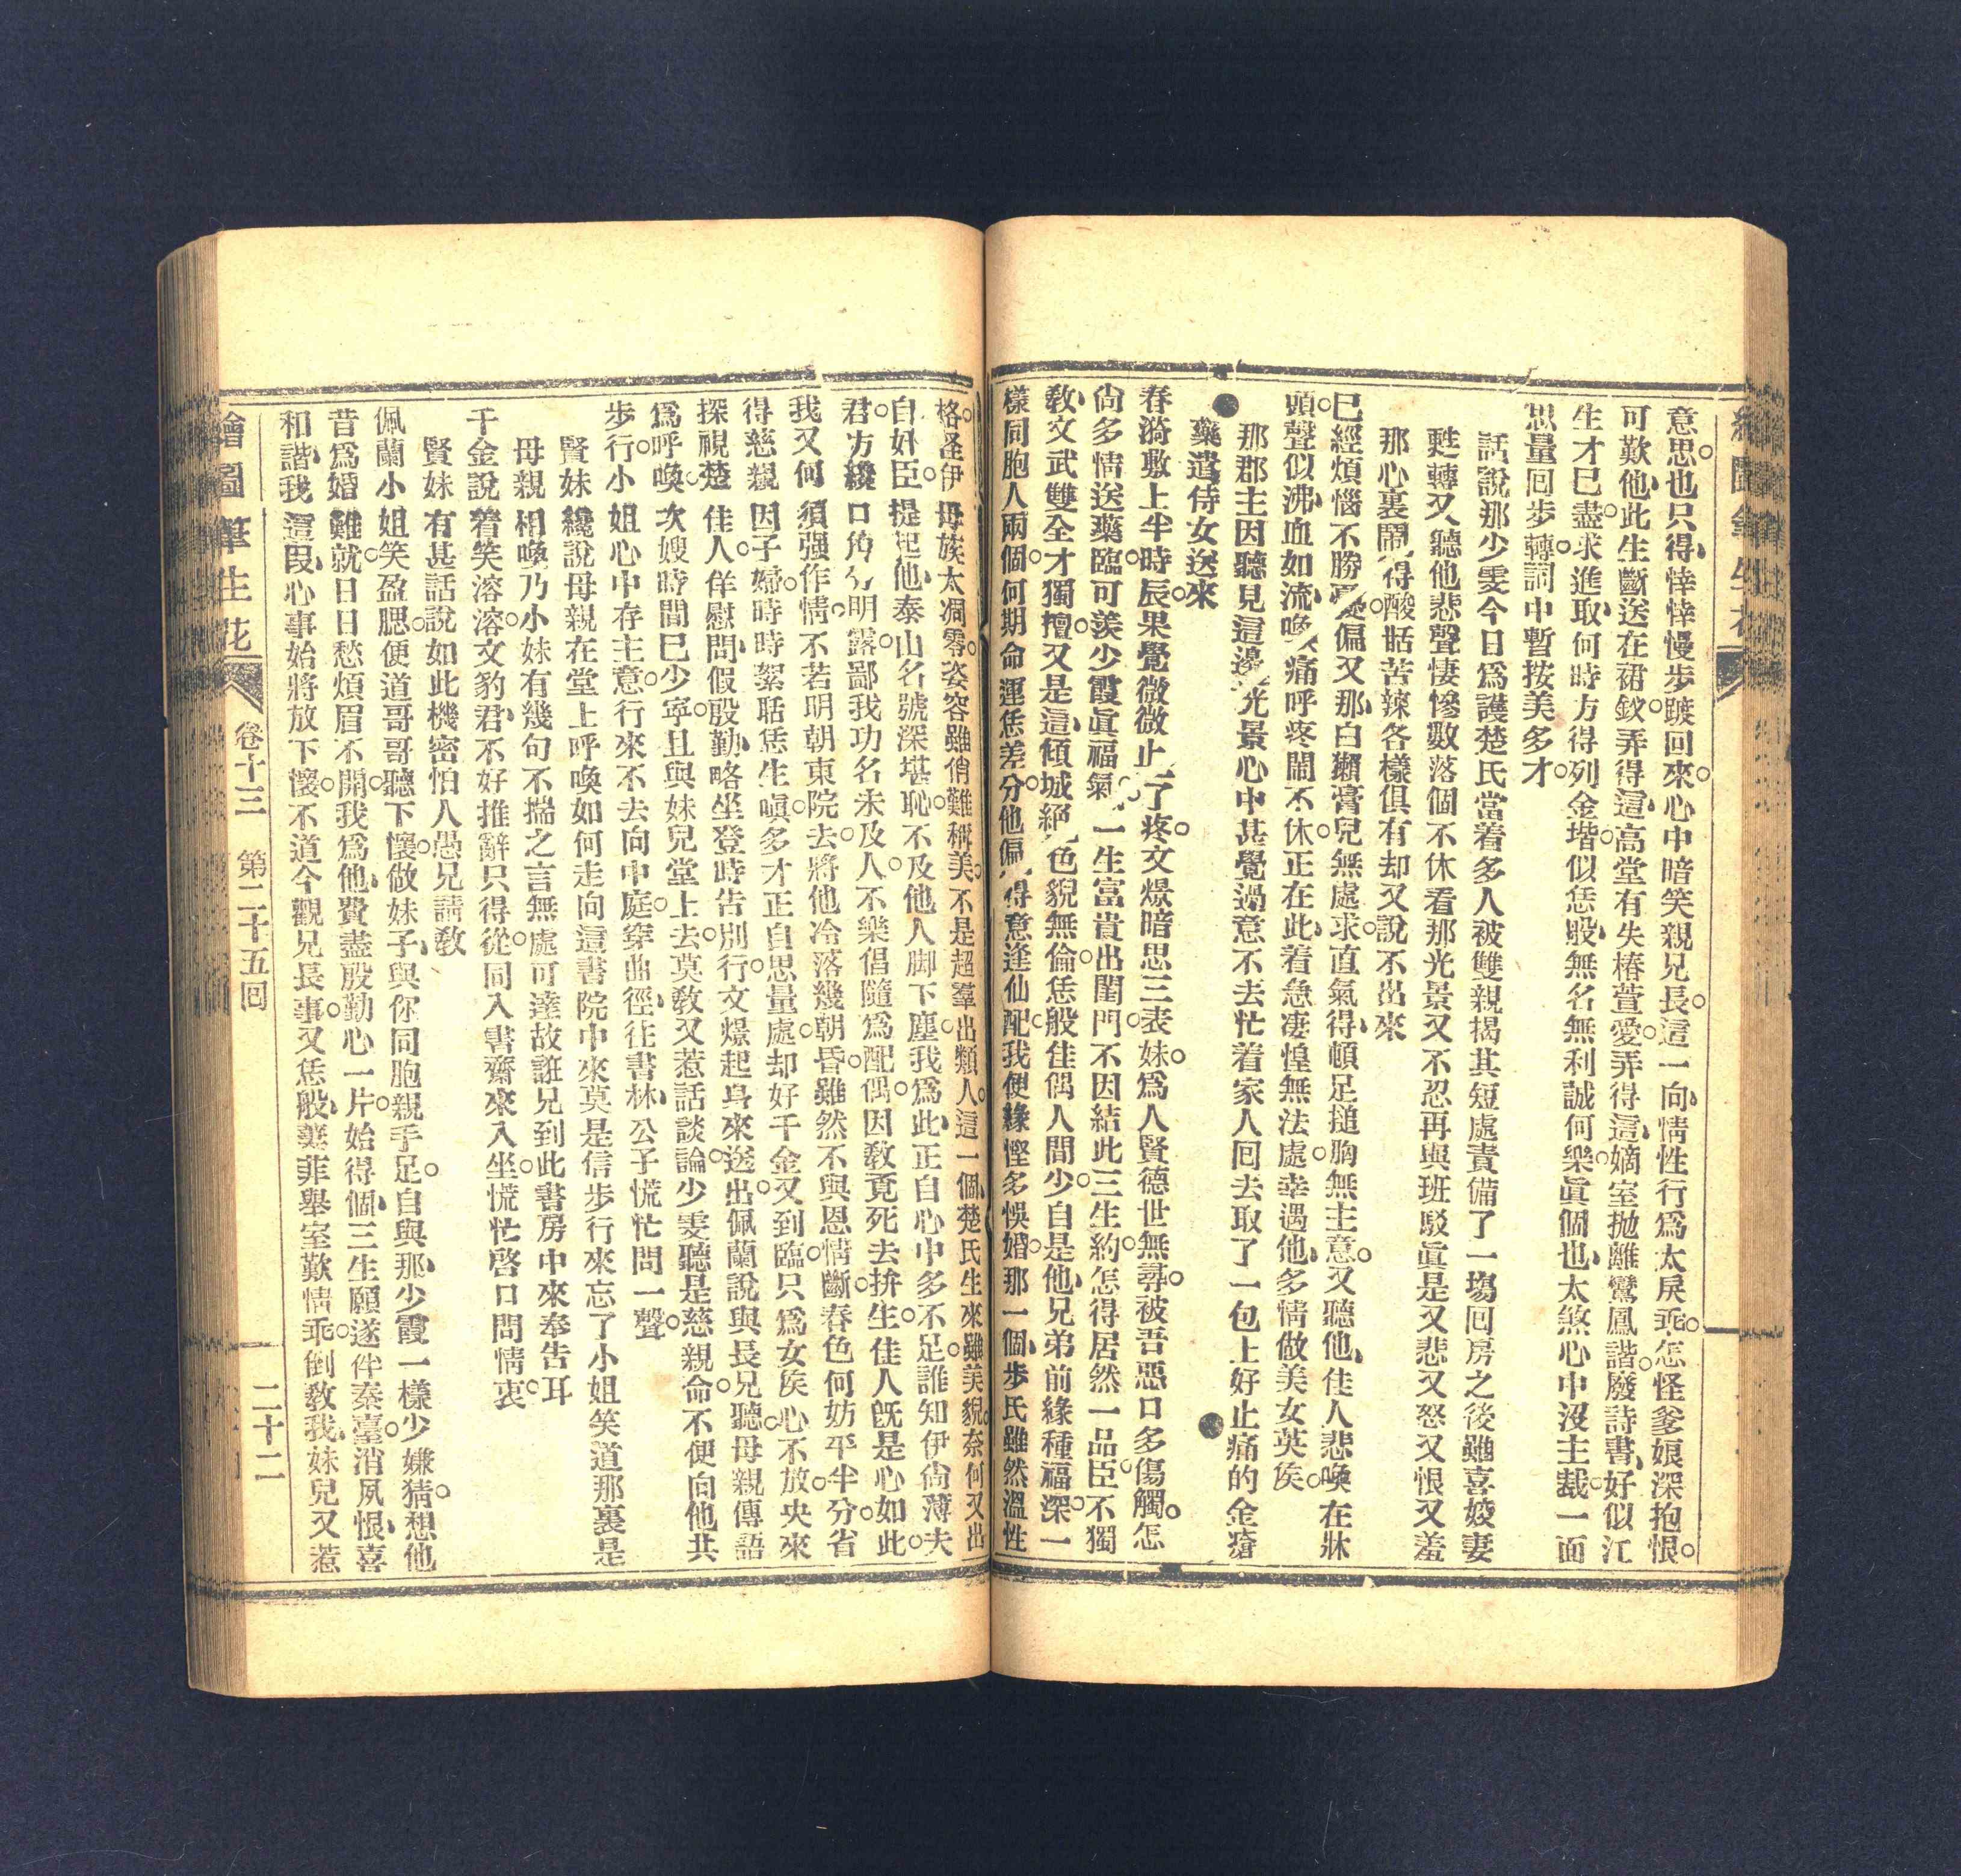 意思也只得悻悻慢步踱回來心中暗笑親兄長這一向情性行爲太戾乖怎怪爹娘深抱恨
可歎他此生斷送在裙釵弄得這高堂有失椿萱愛弄得這嫡室抛離鸞鳳諧廢詩書好似江
生才已盡求進取何時方得列金堦似恁般無名無利誠何樂眞個也太煞心中沒主裁一面
思量回步轉詞中暫按美多才
話說那少雯今日爲護楚氏當着多人被雙親揭其短處責備了一塲回房之後雖喜姣妻
甦轉又聽他悲聲悽慘數落個不休看那光景又不忍再與班駁眞是又悲又怒又恨又羞
那心裏鬧得酸甜苦辣各樣俱有却又說不出來
已經煩惱不勝憂偏又那白獺膏兒無處求直氣得頓足搥胸無主意又聽他佳人悲喚在牀
頭聲似沸血如流喚痛呼疼鬧不休正在此着急凄惶無法處幸遇他多情做美女英侯
那郡主因聽見這邊光景心中甚覺過意不去忙着家人回去取了一包上好止痛的金瘡
藥遣侍女送來
春漪敷上半時辰果覺微微止了疼文㷼暗思三表妹爲人賢德世無尋被吾惡口多傷觸怎
尙多情送藥臨可羨少霞眞福氣一生富貴出閨門不因結此三生約怎得居然一品臣不獨
敎文武雙全才獨擅又是這傾城絕色貌無倫恁般佳偶人間少自是他兄弟前緣種福深一
樣同胞人兩個何期命運恁差分他偏得意逢仙配我便緣慳多悞婚那一個步氏雖然溫性
格怪伊母族太凋零姿容雖俏難稱美不是超羣出類人這一個楚氏生來雖美貌奈何又出
自奸臣提起他泰山名號深堪恥不及他人脚下塵我爲此正自心中多不足誰知伊尙薄夫
君方纔口角分明露鄙我功名未及人不樂倡隨爲配偶因敎覔死去拚生佳人旣是心如此
我又何須强作情不若明朝東院去將他冷落幾朝昏雖然不與恩情斷春色何妨平半分省
得慈親因子婦時時絮聒恁生嗔多才正自思量處却好千金又到臨只爲女侯心不放央來
探視楚佳人佯慰問假殷勤略坐登時告別行文㷼起身來送出佩蘭說與長兄聽母親傳語
爲呼喚次嫂時間已少寧且與妹兒堂上去莫敎又惹話談論少雯聽是慈親命不便向他共
步行小姐心中存主意行來不去向中庭穿曲徑往書林公子慌忙問一聲
賢妹纔說母親在堂上呼喚如何走向這書院中來莫是信步行來忘了小姐笑道那裏是
母親相喚乃小妹有幾句不揣之言無處可達故誑兄到此書房中來奉告耳
千金說着笑溶溶文豹君不好推辭只得從同入書齋來入坐慌忙啓口問情衷
賢妹有甚話說如此機密怕人愚兄請敎
佩蘭小姐笑盈腮便道哥哥聽下懷做妹子與你同胞親手足自與那少霞一樣少嫌猜想他
昔爲婚難就日日愁煩眉不開我爲他費盡殷勤心一片始得個三生願遂伴秦臺消夙恨喜
和諧我這段心事始將放下懷不道今觀兄長事又恁般葑菲舉室歎情乖倒敎我妹兒又惹
繪圖筆生花
卷十三 第二十五回
二十二